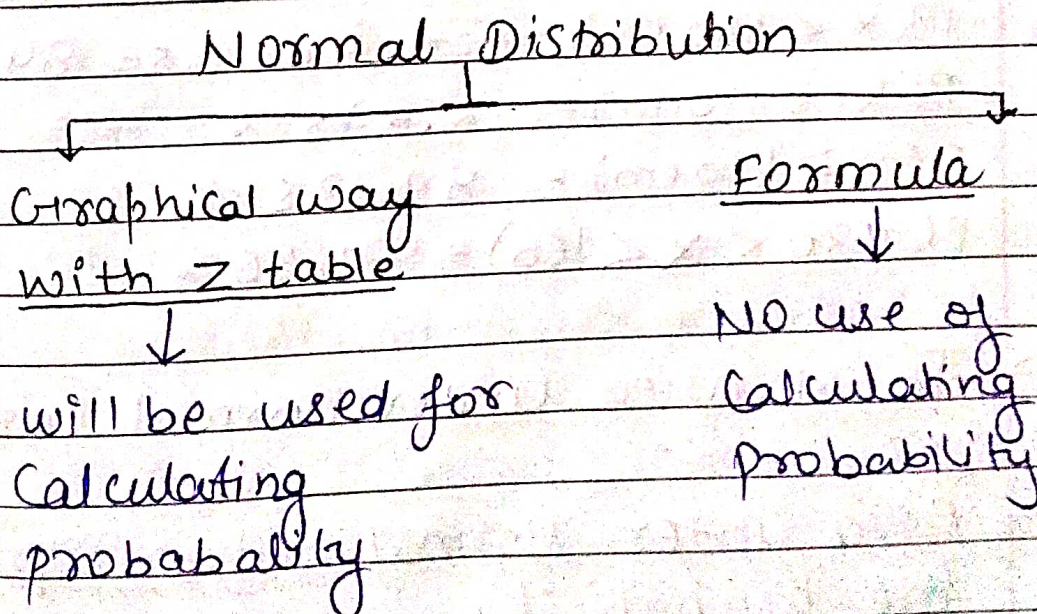 Normal Distribution
Graphical way
with z table
will be used for
Calculating
probabality
Formula
NO use of
Calculating
probability